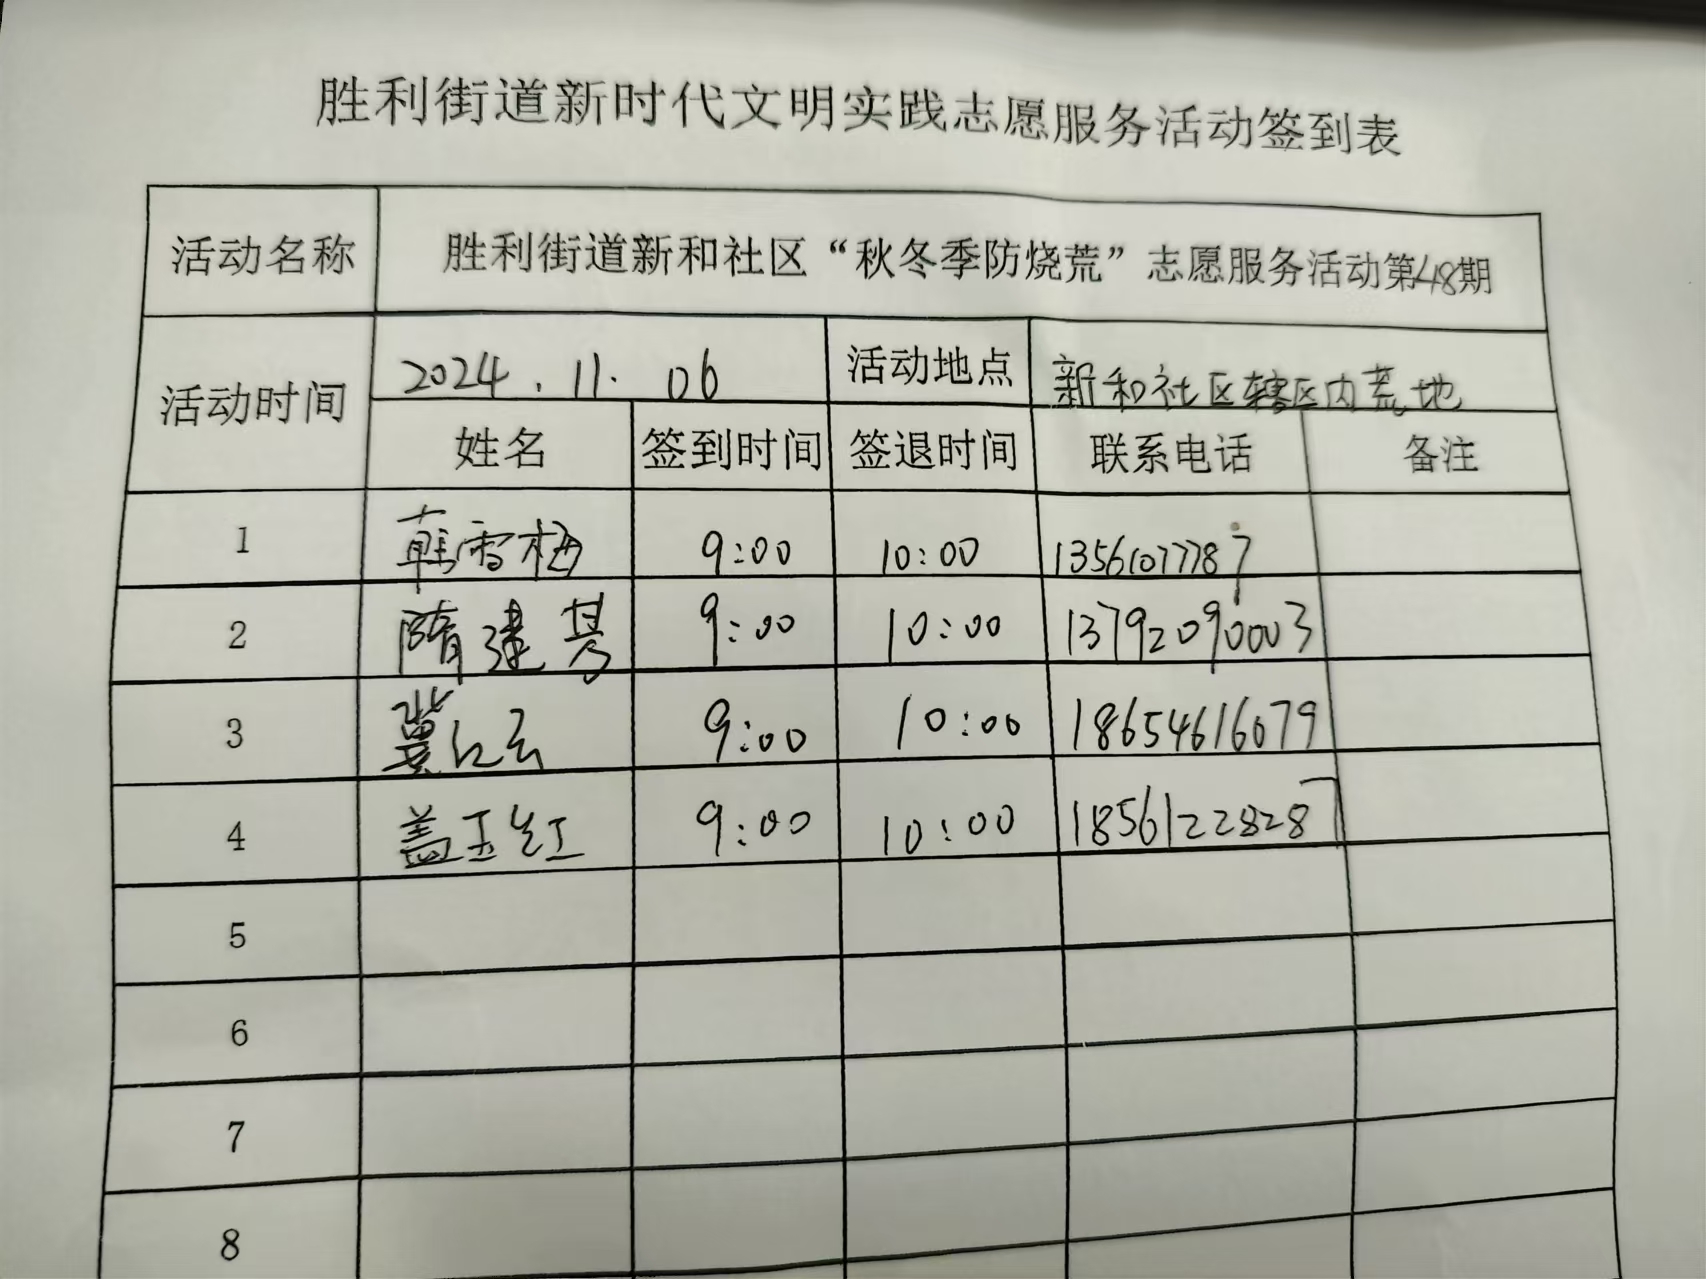 胜利街道新时代文明实践志愿服务活动签到表
活动名称 胜利街道新和社区“秋冬季防烧荒”志愿服务活动第48期
活动时间 2024.11.06 活动地点 新和社区辖区内荒地
姓名 签到时间 签退时间 联系电话 备注
1 韩雪梅 9:00 10:00 13561077787
2 隋建 9:00 10:00 13792090003
3 冀红云 9:00 10:00 18654616079
4 盖玉红 9:00 10:00 18561228287
5
6
7
8